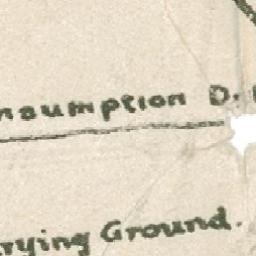 nsumption D.
rying Ground.